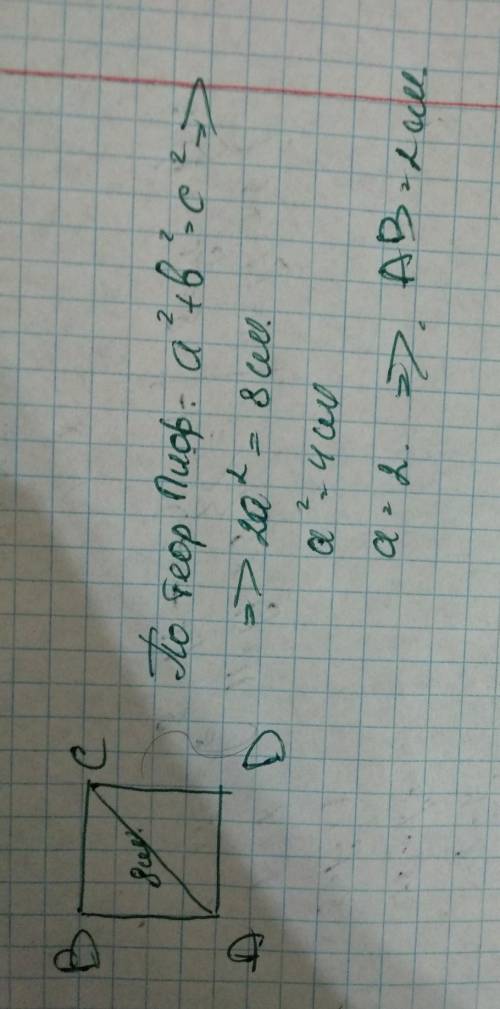 B C
8 см.
A D
По теор. Пиф: a² + b² = c² =>
=> 2a² = 8 см.
a² = 4 см
a = 2. =>. AB = 2 см.